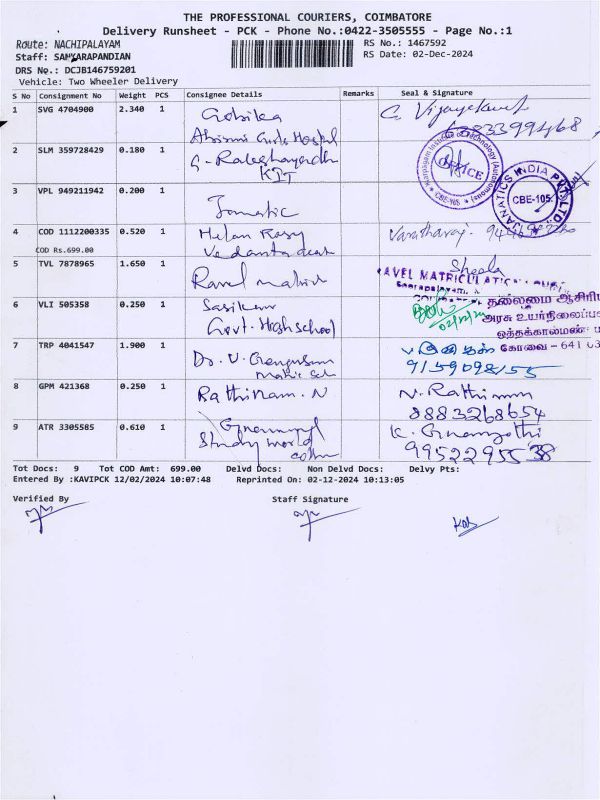 THE PROFESSIONAL COURIERS, COIMBATORE
Delivery Runsheet - PCK - Phone No.:0422-3505555 - Page No.:1
Route: NACHIPALAYAM
RS No.: 1467592
Staff: SANKARAPANDIAN
RS Date: 02-Dec-2024
DRS No.: DCJB146759201
Vehicle: Two Wheeler Delivery
S No Consignment No Weight PCS Consignee Details Remarks Seal & Signature
1 SVG 4704900 2.340 1 Gobika
2 SLM 359728429 0.180 1
KIT
OFFICE
CBE-105
3 VPL 949211942 0.200 1
INDIA PVT. LTD.
CBE-105
4 COD 1112200335 0.520 1
COD Rs.699.00
Vedanta
Varatharaj.
5 TVL 7878965 1.650 1 Ravel matric
Sheela
RAVEL MATRICULATION
6 VLI 505358 0.250 1 Sasikum
Govt. High school
02/12/24
தலைமை ஆசிரி
அரசு உயர்நிலைப்
ஒத்தக்கால்மண்
கோவை - 641
7 TRP 4041547 1.900 1 Dr. V.
Matric Sch
9159098155
8 GPM 421368 0.250 1 Rathinam. N N. Rathinam
8883268654
9 ATR 3305585 0.610 1
Study world
9952295538
Tot Docs: 9 Tot COD Amt: 699.00 Delvd Docs: Non Delvd Docs: Delvy Pts:
Entered By :KAVIPCK 12/02/2024 10:07:48 Reprinted On: 02-12-2024 10:13:05
Verified By Staff Signature